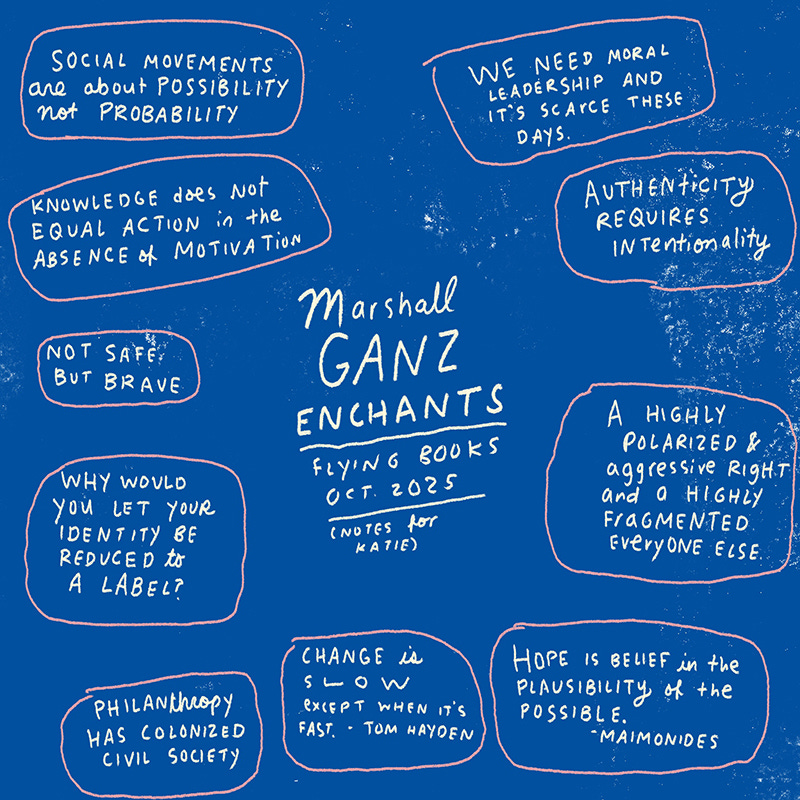 SOCIAL MOVEMENTS
are about POSSIBILITY
not PROBABILITY
WE NEED MORAL
LEADERSHIP AND
IT'S SCARCE THESE
DAYS.
KNOWLEDGE does NOT
EQUAL ACTION in the
ABSENCE of MOTIVATION
AUTHENTICITY
REQUIRES
INTENTIONALITY
Marshall
GANZ
ENCHANTS
FLYING BOOKS
OCT. 2025
(NOTES for
KATIE)
NOT SAFE.
BUT BRAVE
A HIGHLY
POLARIZED &
aggressive RIGHT
and a HIGHLY
FRAGMENTED
EVERYONE ELSE.
WHY WOULD
YOU LET YOUR
IDENTITY BE
REDUCED to
A LABEL?
PHILANthropy
HAS COLONIZED
CIVIL SOCIETY
CHANGE is
SLOW
EXCEPT WHEN IT'S
FAST. - TOM HAYDEN
HOPE IS BELIEF in the
PLAUSIBILITY of the
POSSIBLE.
-MAIMONIDES